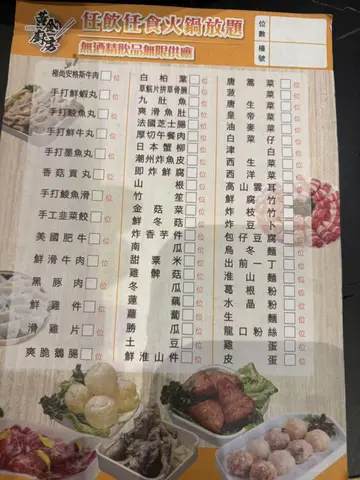 黃金
廚房
任飲任食火鍋放題
無酒精飲品無限供應
位數
檯號
極尚安格斯牛肉 位
手打鮮蝦丸 位
手打鯪魚丸 位
手打鮮牛丸 位
手打墨魚丸 位
香菇貢丸 位
手打鯪魚滑 位
手工韭菜餃 位
美國肥牛 位
鮮滑牛肉 位
黑豚肉 位
鮮雞件 位
滑雞片 位
爽脆鵝腸 位
白柏葉 位
九肚魚 位
爽滑魚肚 位
法國芝士腸 位
厚切午餐肉 位
日本蟹柳 位
潮州炸魚皮 位
即炸鮮腐
山根
竹笙
金菇菜
鮮冬菇
炸香芋件
南瓜
甜粟米
雞髀菇
冬瓜
蓮藕
蘿蔔
勝瓜
土豆
鮮淮山件
唐蒿菜 位
菠菜 位
生菜 位
皇帝菜 位
油麥菜 位
白菜仔 位
津白 位
西洋菜 位
西生菜 位
高山雲耳
鮮腐竹
炸枝竹
炸豆卜
包仔豆腐
烏冬麵
出前一丁
葛根麵
水晶粉
生粉
龍口粉絲
雞蛋
皮蛋